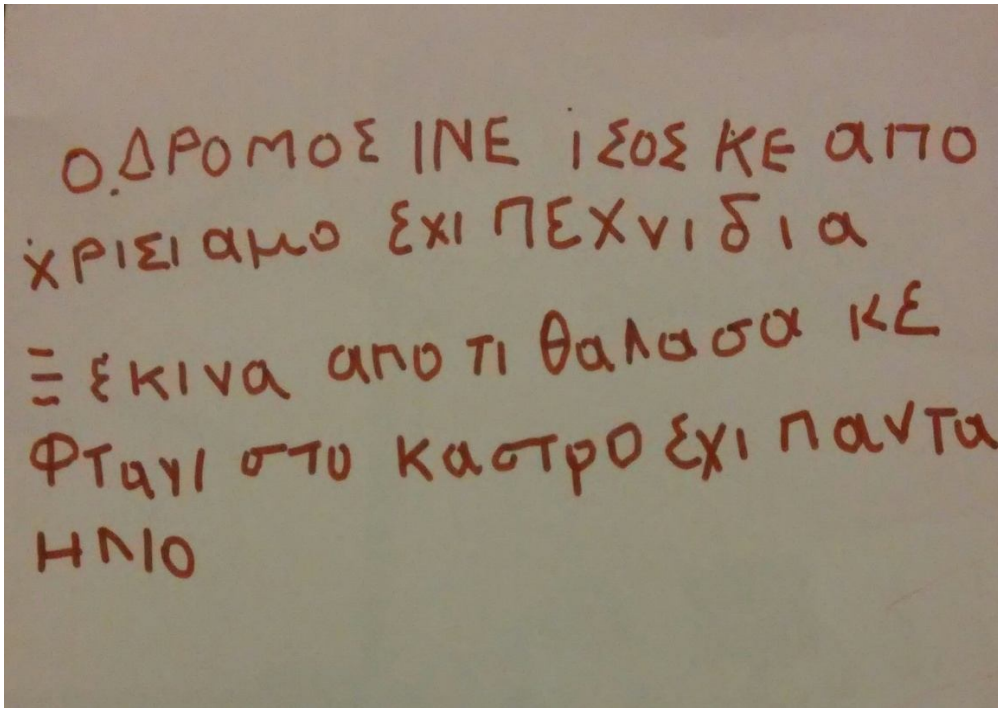 Ο ΔΡΟΜΟΣ ΙΝΕ ιΣΟΣ ΚΕ αΠΟ
ΧΡΙΣΙ αμΟ ΕΧΙ ΠΕΧνιδια
Ξεκινα απο τι θαλασα κΕ
Φταγι στο καστρο Εχι παντα
ΗΛΙΟ